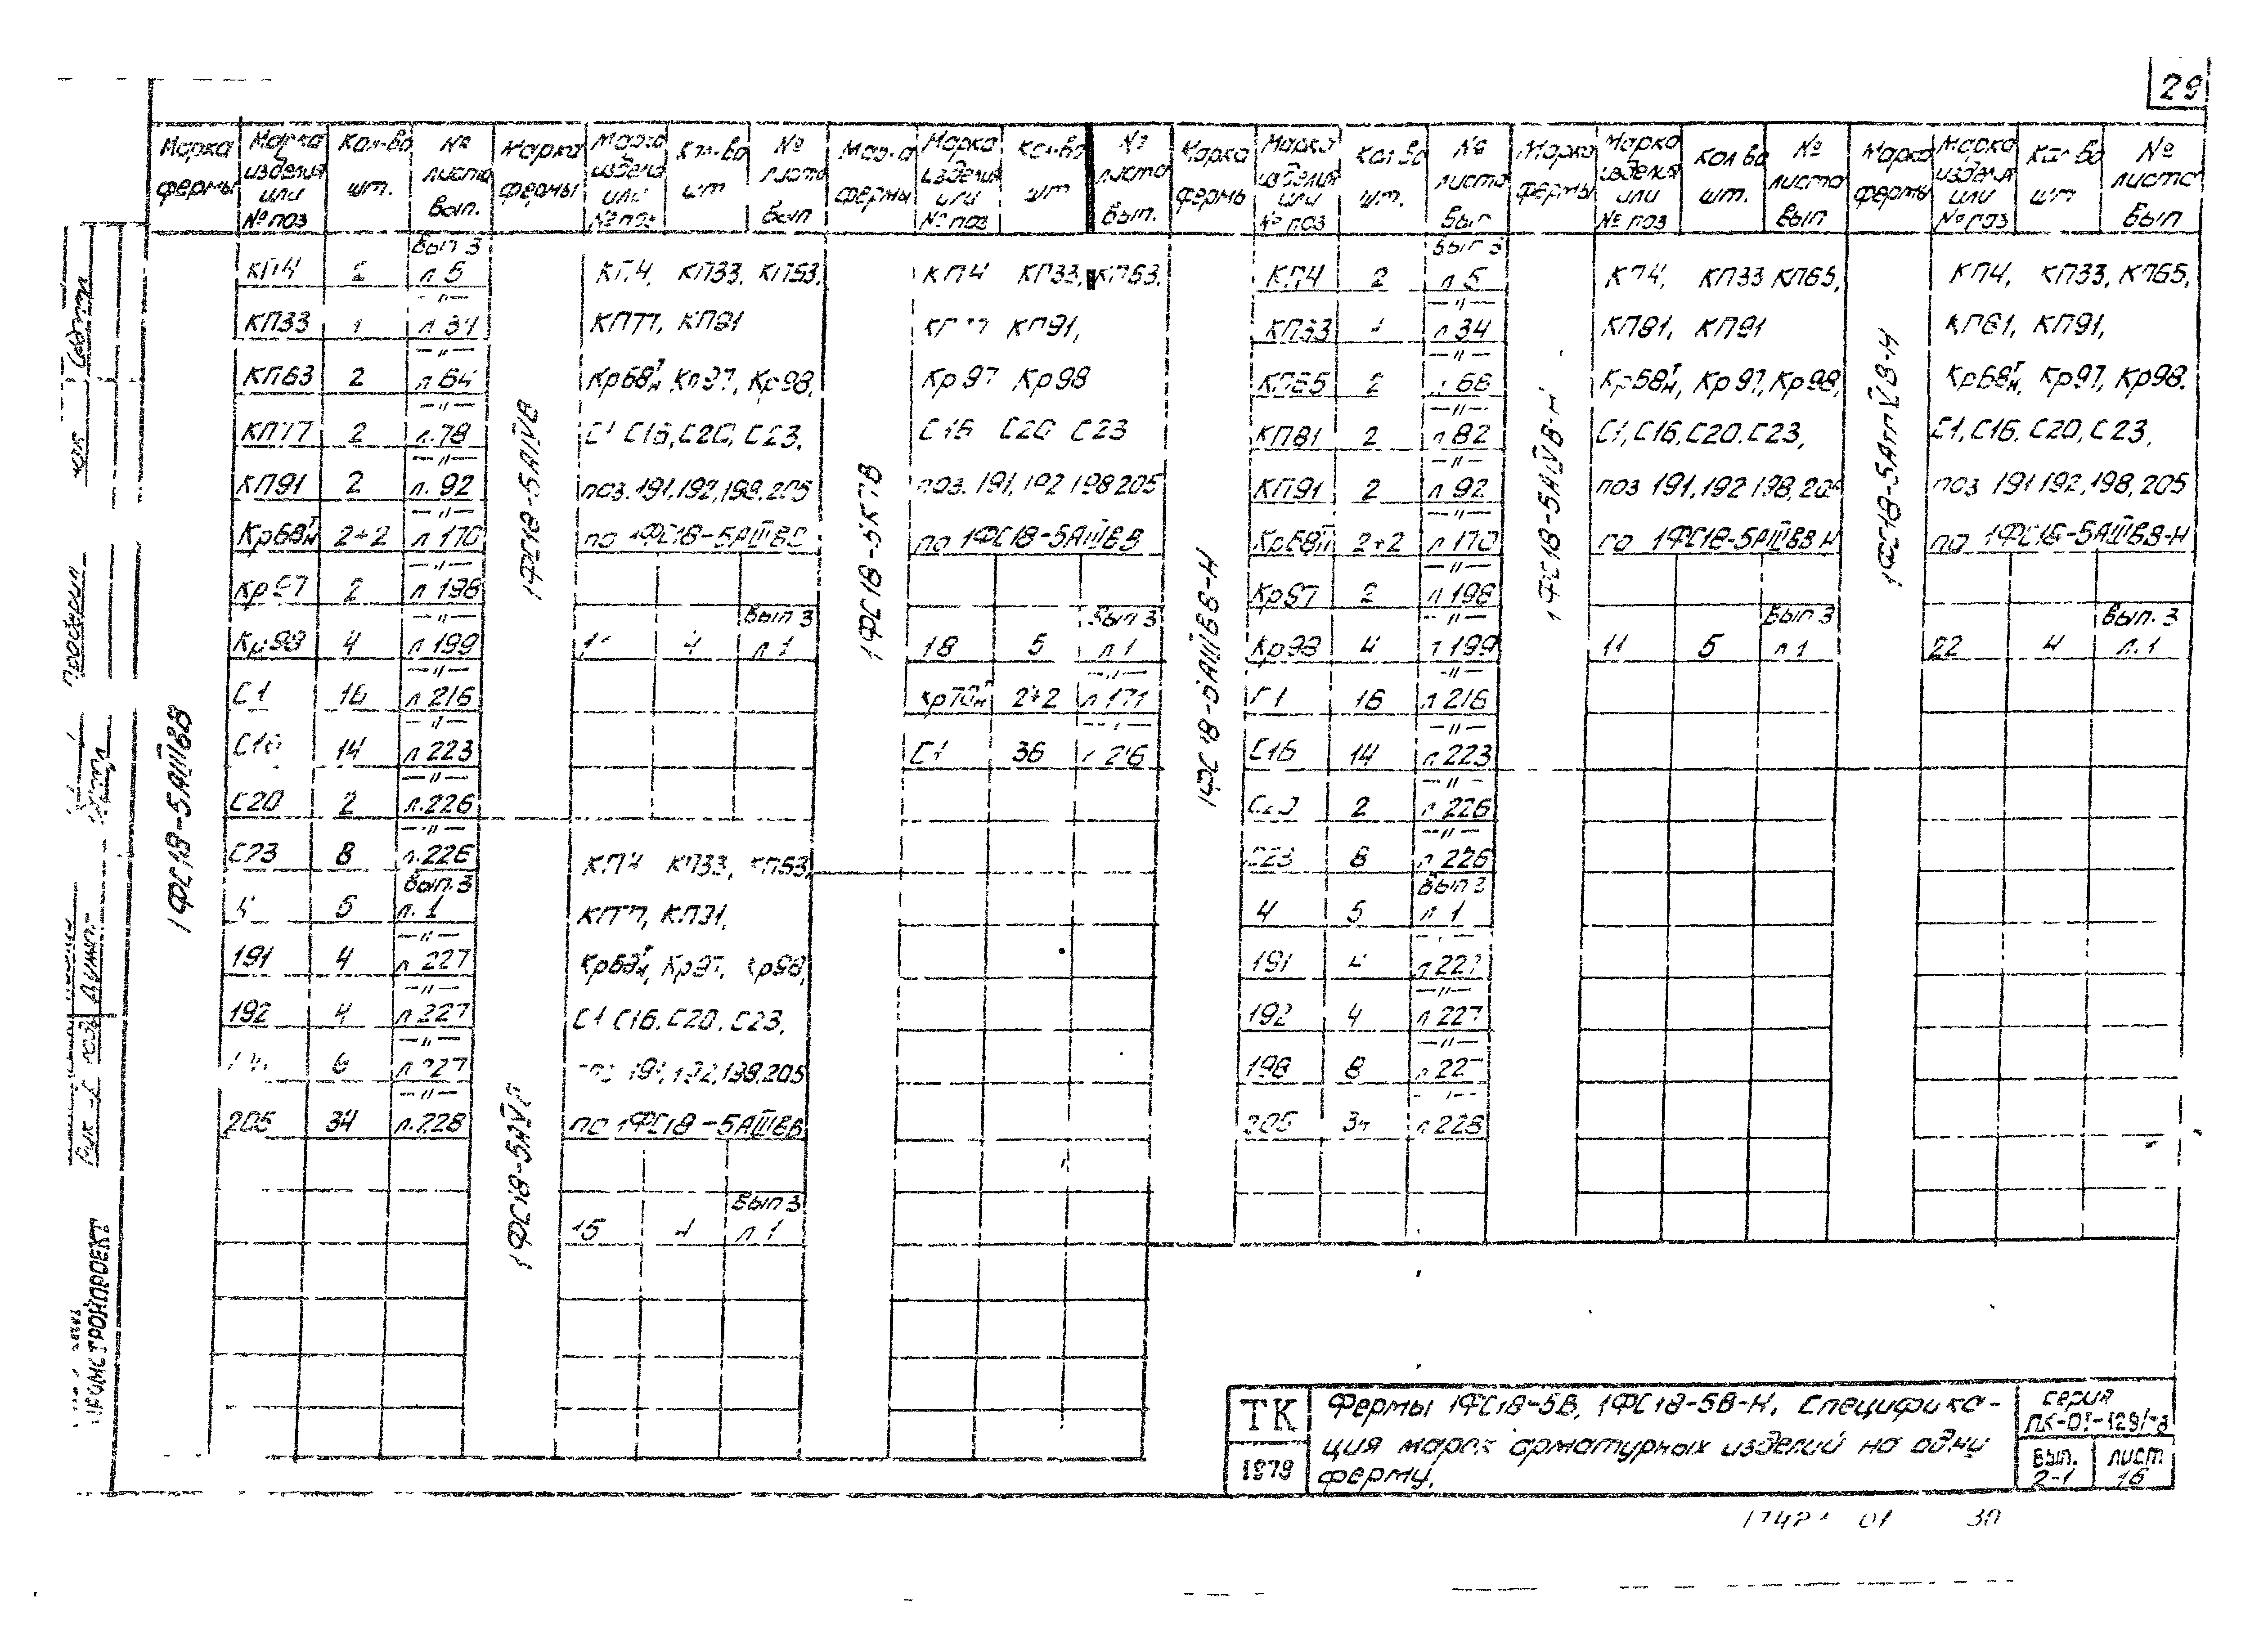 29
Марка фермы | Марка изделия или № поз | Кол-во шт. | № листа вып.
1ФС18-5АIIIВВ
Вып 3
КП4 2 л 5
—"—
КП33 1 л 34
—"—
КП63 2 л 64
—"—
КП77 2 л.78
—"—
КП91 2 л. 92
—"—
2+2 л 170
—"—
Кр97 2 л 198
—"—
Кр98 4 л 199
—"—
С1 16 л 216
—"—
С16 14 л 223
—"—
С20 2 л.226
—"—
С23 8 л.226
Вып. 3
4 5 л. 1
—"—
191 4 л 227
—"—
192 4 л 227
—"—
л 227
—"—
205 34 л.228
Марка фермы | Марка изделия или № поз | Кол-во шт | № листа Вып
1ФС18-5АIVВ
КП4, КП33, КП63,
КП77, КП91
Кр97, Кр98,
С1 С16, С20, С23,
поз. 191, 192, 198, 205
по 1ФС18-5АIIIВВ
Вып 3
11 4 л 1
1ФС18-5АV
КП4 КП33, КП63,
КП77, КП91,
Кр97, Кр98,
С1 С16, С20, С23,
191, 192, 198, 205
по 1ФС18-5АIIIВВ
Вып 3
15 4 л 1
Марка фермы | Марка изделия или № поз | Кол-во шт | № листа Вып.
1ФС18-5К7В
КП4 КП33, КП63,
КП77 КП91,
Кр97 Кр98
С16 С20 С23
поз. 191, 192 198 205
по 1ФС18-5АIIIВВ
Вып 3
18 5 л 1
2+2 л 171
С1 36 л 216
Марка фермы | Марка изделия или № поз | Кол-во шт. | № листа Вып
1ФС18-5АIIIВВ-Н
Вып 3
КП4 2 л 5
—"—
КП33 1 л 34
—"—
КП65 2 л 66
—"—
КП81 2 л 82
—"—
КП91 2 л 92
—"—
2+2 л 170
—"—
Кр97 2 л 198
—"—
Кр98 4 л 199
—"—
С1 16 л 216
—"—
С16 14 л 223
—"—
С20 2 л 226
—"—
С23 8 л 226
Вып 3
4 5 л 1
191 4 л 227
—"—
192 4 л 227
—"—
198 8 л 227
205 34 л 228
Марка фермы | Марка изделия или № поз | Кол во шт. | № листа Вып
1ФС18-5АIVВ-Н
КП4, КП33 КП65,
КП81, КП91
Кр97, Кр98,
С1, С16, С20. С23,
поз 191, 192 198, 205
по 1ФС18-5АIIIВВ Н
Вып 3
11 5 л 1
Марка фермы | Марка изделия или № поз | Кол-во шт | № листа Вып
1ФС18-5АтVВ-Н
КП4, КП33, КП65,
КП81, КП91,
Кр97, Кр98.
С1, С16. С20, С23,
поз 191 192, 198, 205
по 1ФС18-5АIIIВВ-Н
Вып. 3
22 4 л. 1
проверил
ПРОМСТРОЙПРОЕКТ
ТК
1979
Фермы 1ФС18-5В, 1ФС18-5В-Н. Специфика-
ция марок арматурных изделий на одну
ферму.
серия
ПК-01-129/78
вып. 2-1
лист 16
01 30